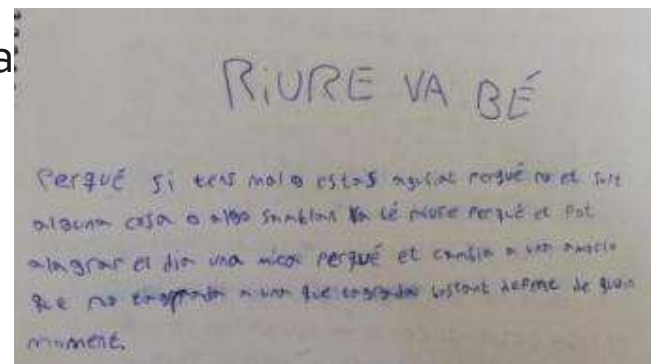 a
RiURE VA BÉ
Perqué si tens mal o estas agobiat perqué no et surt
alguna cosa o algo semblan va bé riure perqué et pot
alagrar el dia una mica perqué et cambia a una emocio
que no a una que bastant depene de quin
moment.